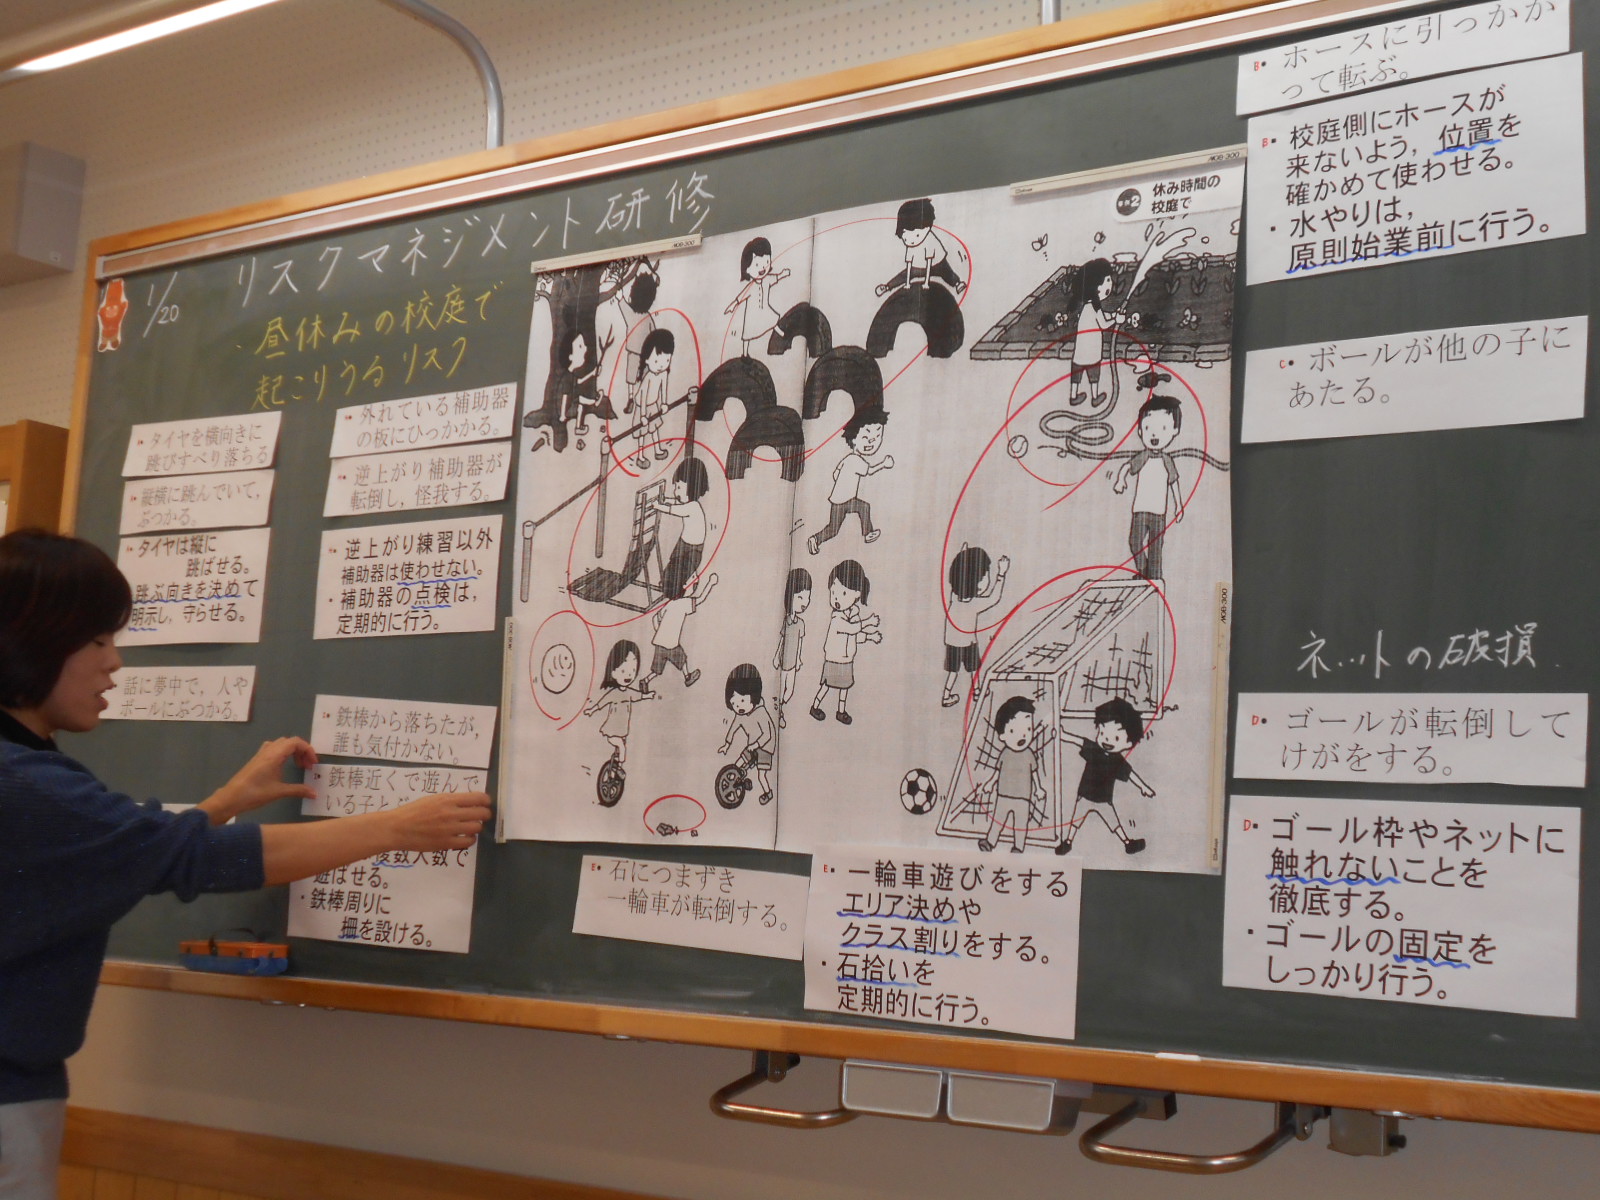 1/20
リスクマネジメント研修
・昼休みの校庭で
起こりうるリスク
・タイヤを横向きに
跳びすべり落ちる
・縦横に跳んでいて，
ぶつかる。
・タイヤは縦に
跳ばせる。
・跳ぶ向きを決めて
明示し，守らせる。
話に夢中で，人や
ボールにぶつかる。
・外れている補助器
の板にひっかかる。
・逆上がり補助器が
転倒し，怪我する。
・逆上がり練習以外
補助器は使わせない。
・補助器の点検は，
定期的に行う。
・鉄棒から落ちたが，
誰も気付かない。
・鉄棒近くで遊んで
いる子と
複数人数で
遊ばせる。
・鉄棒周りに
柵を設ける。
2
休み時間の
校庭で
E・石につまずき
一輪車が転倒する。
E・一輪車遊びをする
エリア決めや
クラス割りをする。
・石拾いを
定期的に行う。
B・ホースに引っかか
って転ぶ。
B・校庭側にホースが
来ないよう，位置を
確かめて使わせる。
・水やりは，
原則始業前に行う。
C・ボールが他の子に
あたる。
ネットの破損
D・ゴールが転倒して
けがをする。
D・ゴール枠やネットに
触れないことを
徹底する。
・ゴールの固定を
しっかり行う。